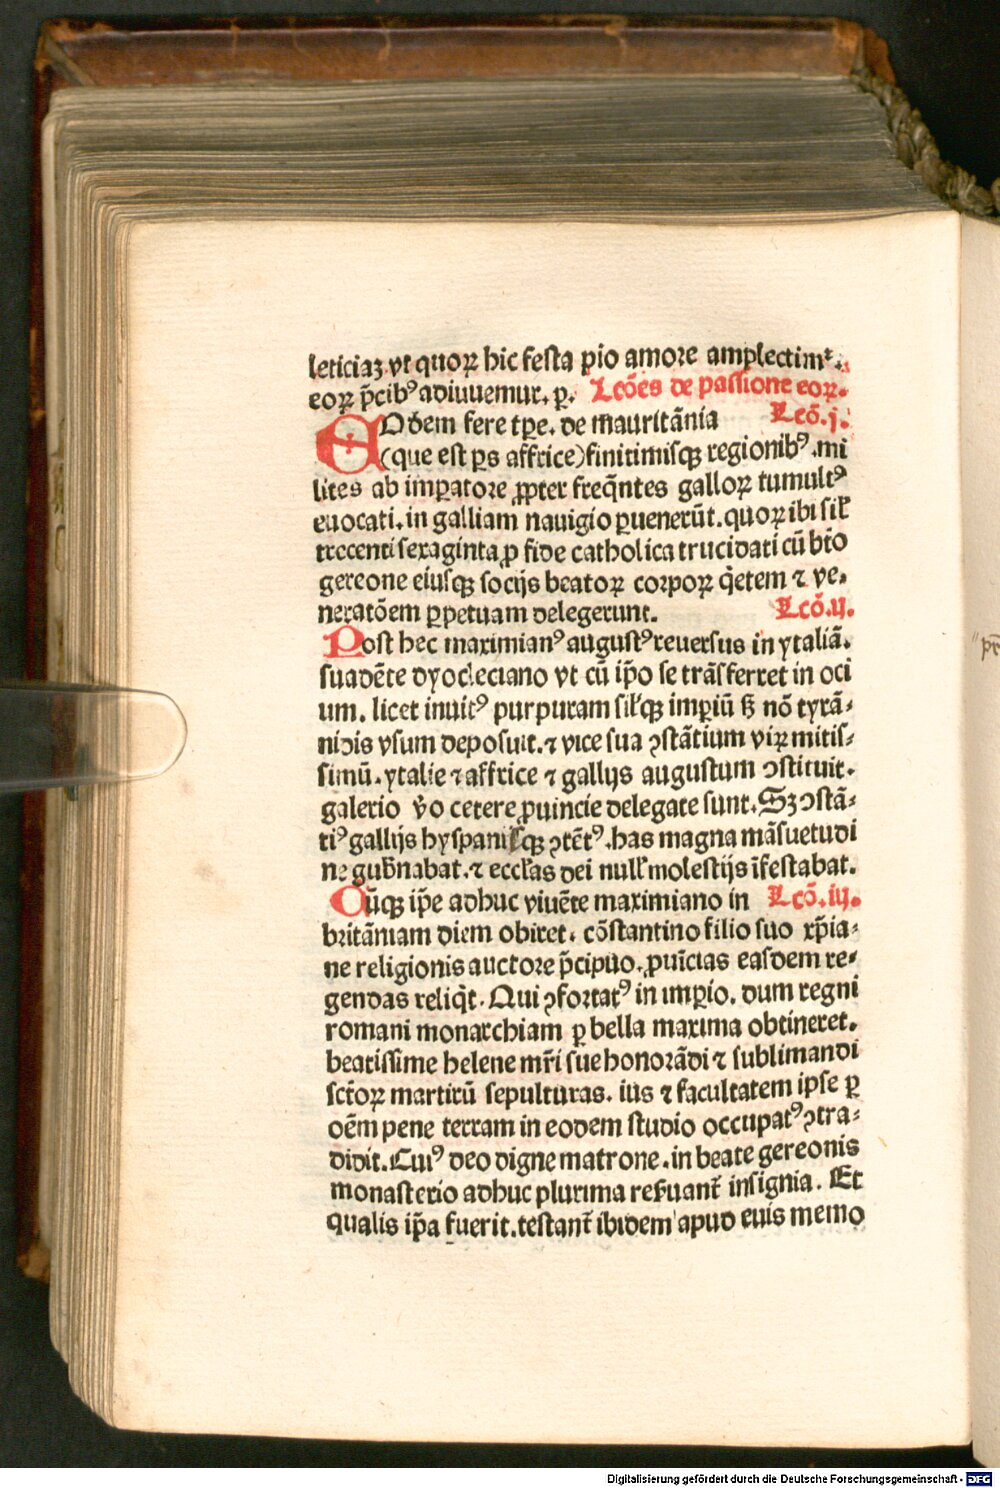 leticiaꝫ vt quoꝝ hic festa pio amore amplectimᷣ.
eoꝝ p̄cibꝰ adiuuemur. p. Lcōes de passione eoꝝ.
EOdem fere tꝑe. de mauritānia Lcō.j.
(que est ꝑs affrice)finitimisqꝫ regionibꝰ .mi
lites ab imꝑatore ꝓpter freq̄ntes galloꝝ tumultꝰ
euocati. in galliam nauigio ꝑuenerūt. quoꝝ ibi sil̓
trecenti sexaginta ꝓ fide catholica trucidati cū bt̄o
gereone eiusqꝫ socijs beatoꝝ corpoꝝ q̄etem ⁊ ve-
neratōem ꝑpetuam delegerunt. Lcō.ij.
Post hec maximianꝰ augustꝰ reuersus in ytaliā.
suadēte dyocleciano vt cū ip̄o se trāsferret in oci
um. licet inuitꝰ purpuram sil̓qꝫ imꝑiū sꝫ nō tyrā-
nidis vsum deposuit. ⁊ vice sua ꝯstātium viꝝ mitis-
simū. ytalie ⁊ affrice ⁊ gallijs augustum ꝯstituit.
galerio v̄o cetere ꝓuincie delegate sunt. Sꝫ ꝯstā-
tiꝰ gallijs hyspanisqꝫ ꝯtētꝰ. has magna māsuetudi
ne gub̄nabat. ⁊ eccl̓as dei null̓ molestijs īfestabat.
Cūqꝫ ip̄e adhuc viuēte maximiano in Lcō.iij.
britāniam diem obiret. cōstantino filio suo xp̄ia-
ne religionis auctore p̄cipuo. ꝓuīcias easdem re-
gendas reliq̄t. Qui ꝯfortatꝰ in imꝑio. dum regni
romani monarchiam ꝑ bella maxima obtineret.
beatissime helene mr̄i sue honorādi ⁊ sublimandi
sct̄oꝝ martirū sepulturas. ius ⁊ facultatem ipse ꝑ
oēm pene terram in eodem studio occupatꝰ ꝯtra-
didit. Cuiꝰ deo digne matrone. in beate gereonis
monasterio adhuc plurima reẜuant̄ insignia. Et
qualis ip̄a fuerit. testant̄ ibidem apud euis memo
Digitalisierung gefördert durch die Deutsche Forschungsgemeinschaft - DFG